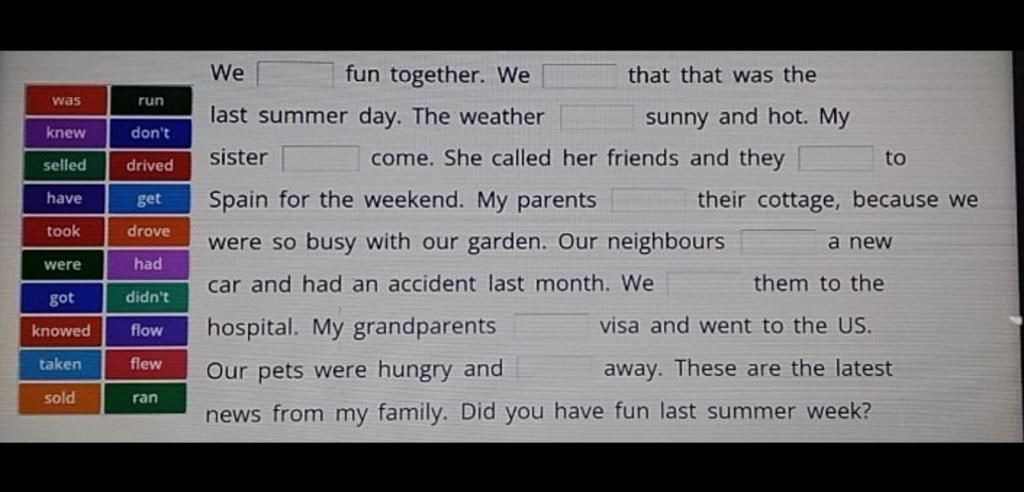 We fun together. We that that was the
last summer day. The weather sunny and hot. My
sister come. She called her friends and they to
Spain for the weekend. My parents their cottage, because we
were so busy with our garden. Our neighbours a new
car and had an accident last month. We them to the
hospital. My grandparents visa and went to the US.
Our pets were hungry and away. These are the latest
news from my family. Did you have fun last summer week?
was run
knew don't
selled drived
have get
took drove
were had
got didn't
knowed flow
taken flew
sold ran